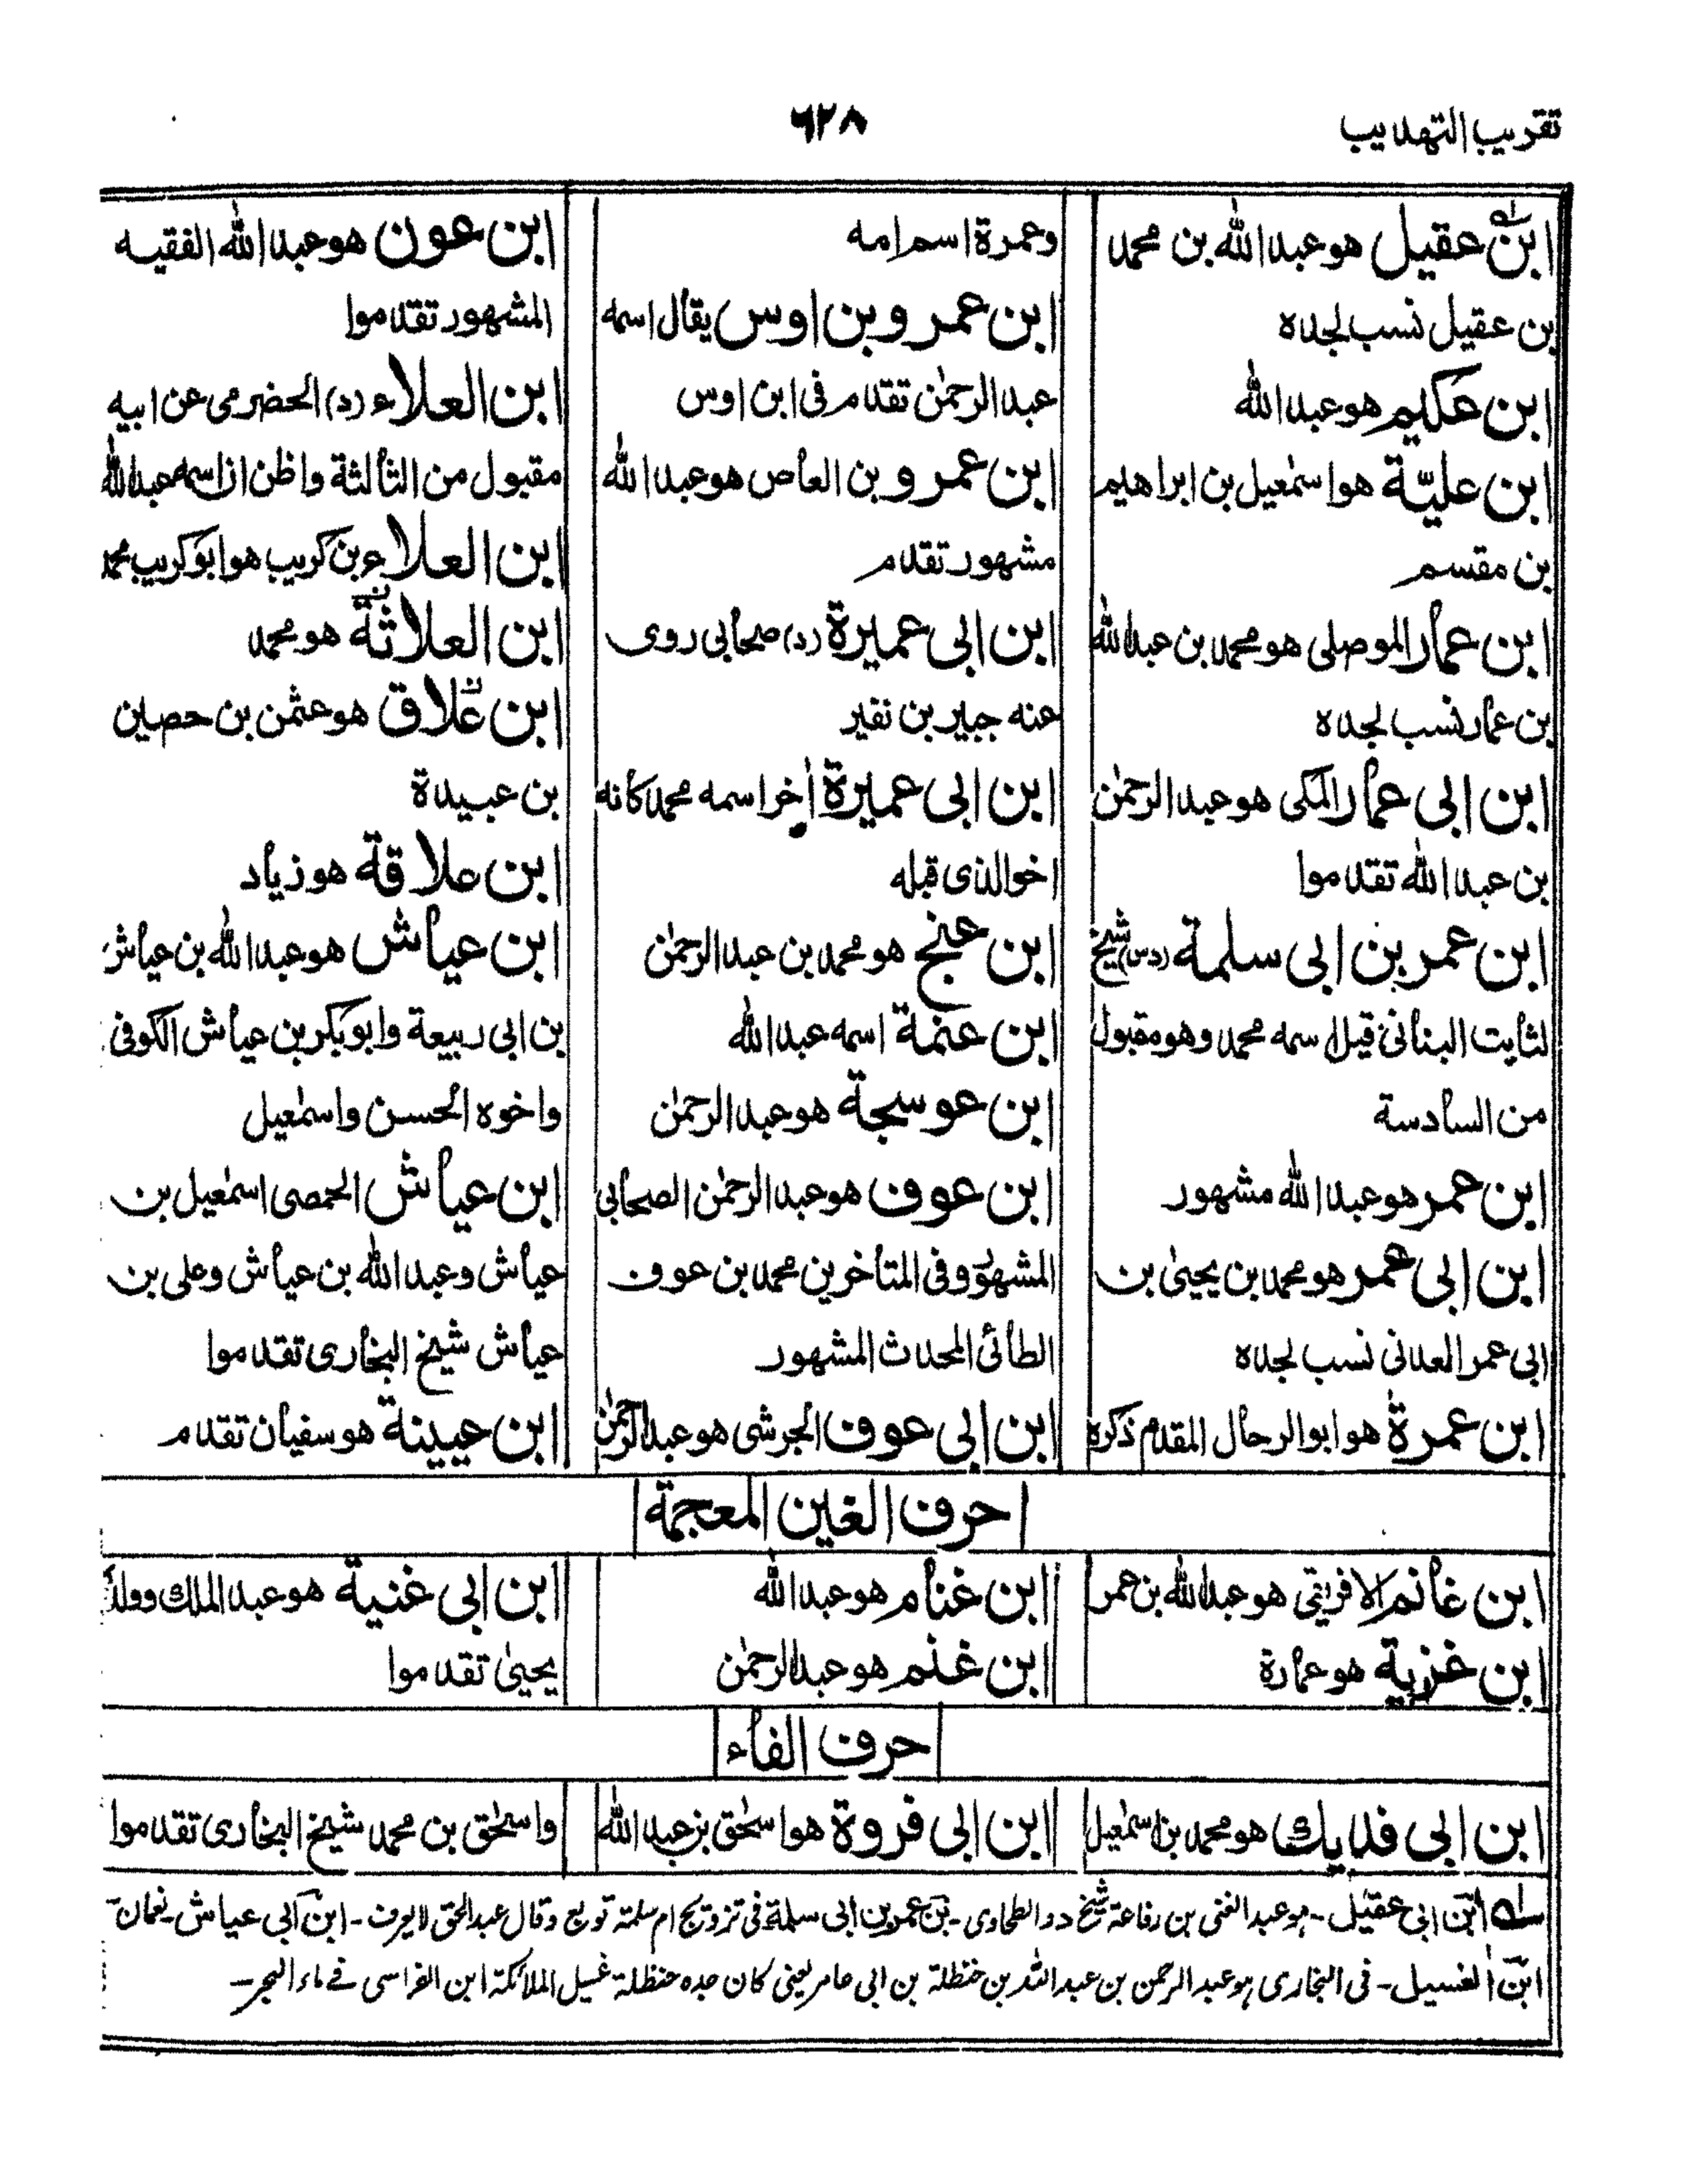 تقريب التهذيب
٦٢٨
ابن عقيل هو عبد الله بن محمد
بن عقيل نسب لجده
ابن عكيم هو عبد الله
ابن عليّة هو اسمٰعيل بن ابراهيم
بن مقسم
ابن عمار الموصلى هو محمد بن عبد الله
بن عمار نسب لجده
ابن ابى عمار المكى هو عبد الرحمٰن
بن عبد الله تقدموا
ابن عمر بن ابى سلمة (دس) شيخ
لثابت البنانى قيل اسمه محمد وهو مقبول
من السادسة
ابن عمر هو عبد الله مشهور
ابن ابى عمر هو محمد بن يحيىٰ بن
ابى عمر العدنى نسب لجده
ابن عمرة هو ابو الرجال المقدم ذكره
وعمرة اسم امه
ابن عمرو بن اوس يقال اسمه
عبد الرحمٰن تقدم فى ابن اوس
ابن عمرو بن العاص هو عبد الله
مشهور تقدم
ابن ابى عميرة (د) صحابى روى
عنه جبير بن نفير
ابن ابى عميرة اٰخر اسمه محمد كانه
اخو الذى قبله
ابن عنج هو محمد بن عبد الرحمٰن
ابن عنمة اسمه عبد الله
ابن عوسجة هو عبد الرحمٰن
ابن عوف هو عبد الرحمٰن الصحابى
المشهور وفى المتأخرين محمد بن عوف
الطائى المحدث المشهور
ابن ابى عوف الجرشى هو عبد الرحمٰن
ابن عون هو عبد الله الفقيه
المشهور تقدموا
ابن العلاء (د) الحضرمى عن ابيه
مقبول من الثالثة واظن ان اسمه عبد الله
ابن العلاء بن كريب هو ابو كريب محمد
ابن العلاثة هو محمد
ابن علاق هو عثمٰن بن حصين
بن عبيدة
ابن علاقة هو زياد
ابن عياش هو عبد الله بن عياش
بن ابى ربيعة وابو بكر بن عياش الكوفى
واخوه الحسن واسمٰعيل
ابن عياش الحمصى اسمٰعيل بن
عياش وعبد الله بن عياش وعلى بن
عياش شيخ البخارى تقدموا
ابن عيينة هو سفيان تقدم
حرف الغين المعجمة
ابن غانم الافريقى هو عبد الله بن عمر
ابن غزية هو عمارة
ابن غنام هو عبد الله
ابن غنم هو عبد الرحمٰن
ابن ابى غنية هو عبد الملك وولده
يحيىٰ تقدموا
حرف الفاء
ابن ابى فديك هو محمد بن اسمٰعيل
ابن ابى فروة هو اسحٰق بن عبد الله
واسحٰق بن محمد شيخ البخارى تقدموا
ابن ابى عقيل ـ هو عبد الغنى بن رفاعة شيخ د والطحاوى ـ بن عمر بن ابى سلمة فى تزويج ام سلمة توبع وقال عبد الحق لا يعرف ـ ابن ابى عياش ـ نعمان
ابن الغسيل ـ فى البخارى هو عبد الرحمن بن عبد الله بن حنظلة بن ابى عامر يعنى كان جده حنظلة غسيل الملائكة ابن الفراسى فے ماء البحر ـ